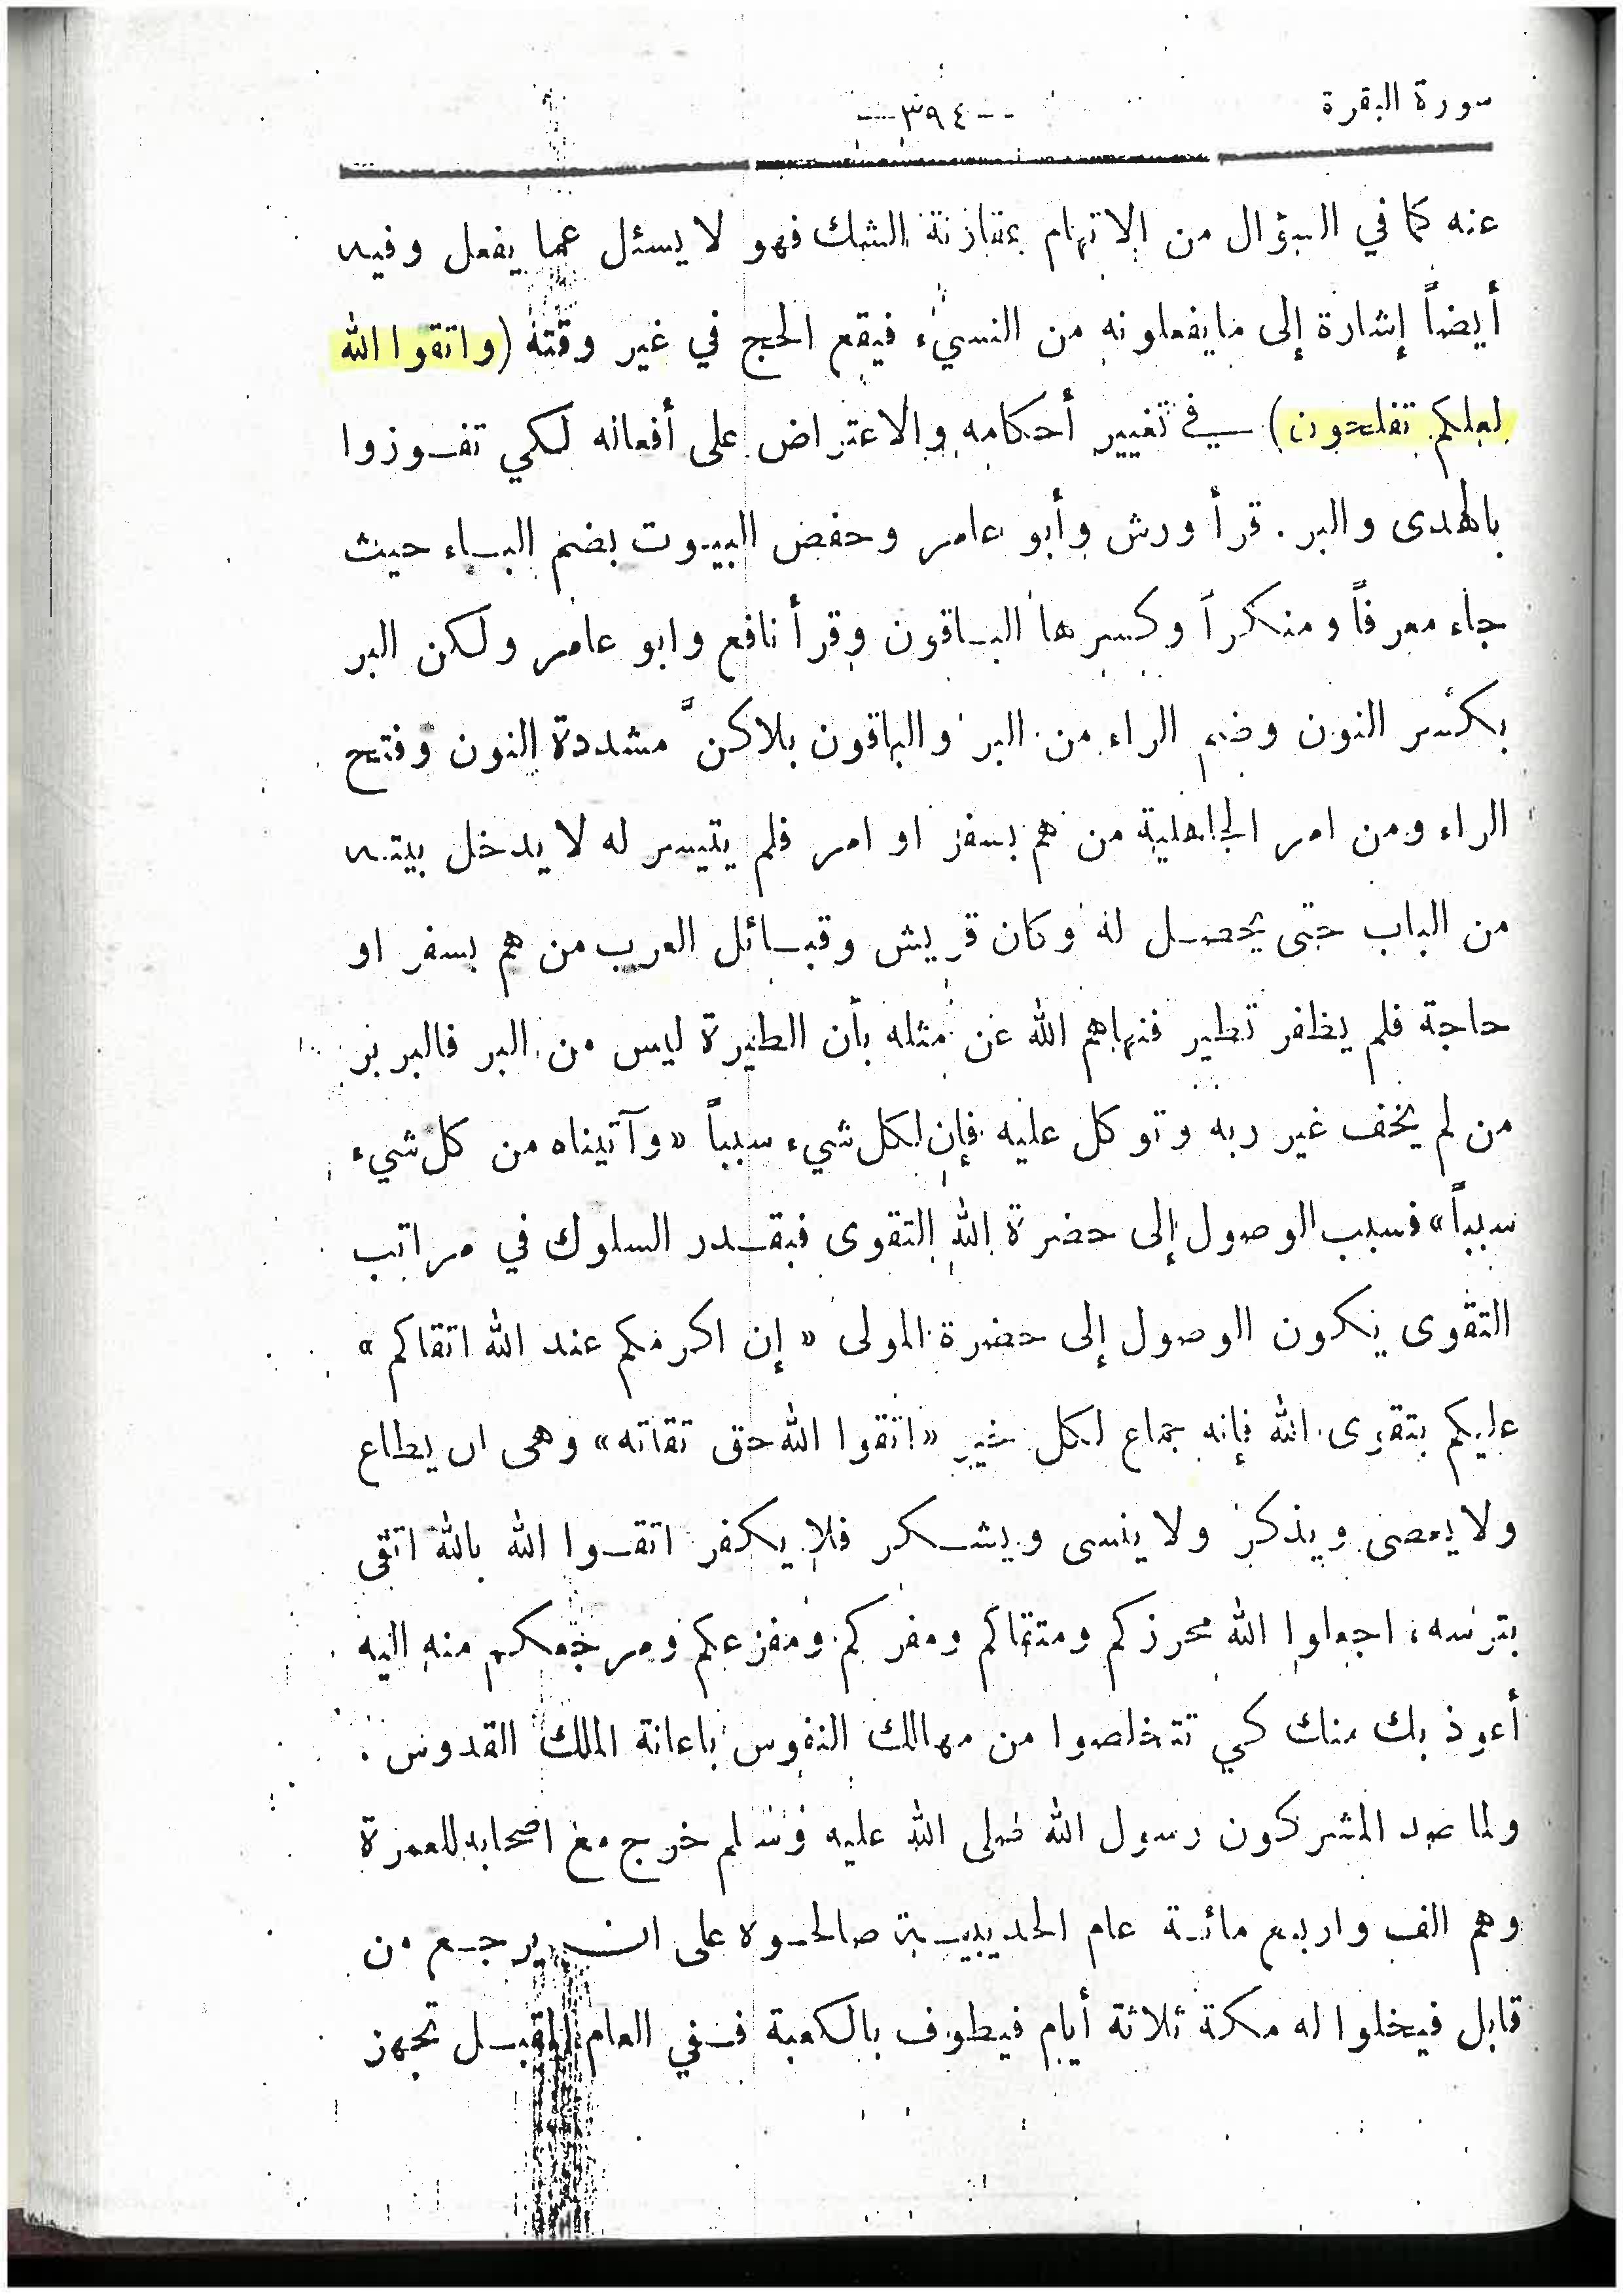 سورة البقرة
--٣٩٤--
عنه كما في السؤال من الاتهام بمقارنة الشك فهو لا يسئل عما يفعل وفيه
أيضاً إشارة إلى ما يفعلونه من النسيء فيقع الحج في غير وقته (واتقوا الله
لعلكم تفلحون) في تغيير أحكامه والاعتراض على أفعاله لكي تفوزوا
بالهدى والبر . قرأ ورش وأبو عامر وحفص البيوت بضم الباء حيث
جاء معرفاً ومنكراً وكسرها الباقون وقرأ نافع وابو عامر ولكن البر
بكسر النون وضم الراء من البر والباقون بلاكنّ مشددة النون وفتح
الراء ومن امر الجاهلية من هم بسفر او امر فلم يتيسر له لا يدخل بيته
من الباب حتى يحصل له وكان قريش وقبائل العرب من هم بسفر او
حاجة فلم يظفر تطير فنهاهم الله عن مثله بأن الطيرة ليس من البر فالبر بر
من لم يخف غير ربه وتوكل عليه فإن لكل شيء سبباً «وآتيناه من كل شيء
سبباً» فسبب الوصول إلى حضرة الله التقوى فبقدر السلوك في مراتب
التقوى يكون الوصول إلى حضرة المولى « إن اكرمكم عند الله اتقاكم »
عليكم بتقوى الله فإنه جماع لكل خير «اتقوا الله حق تقاته» وهى ان يطاع
ولا يعصى ويذكر ولا ينسى ويشكر فلا يكفر اتقوا الله بالله اتقى
بترسه ، اجعلوا الله محرزكم ومتقاكم ومفركم ومفزعكم ومرجعكم منه اليه
أعوذ بك منك كي تتخلصوا من مهالك النفوس باعانة الملك القدوس .
ولما صد المشركون رسول الله صلى الله عليه وسلم خرج مع اصحابه للعمرة
وهم الف واربع مائة عام الحديبية صالحوه على ان يرجع من
قابل فيخلوا له مكة ثلاثة أيام فيطوف بالكعبة ففي العام المقبل تجهز